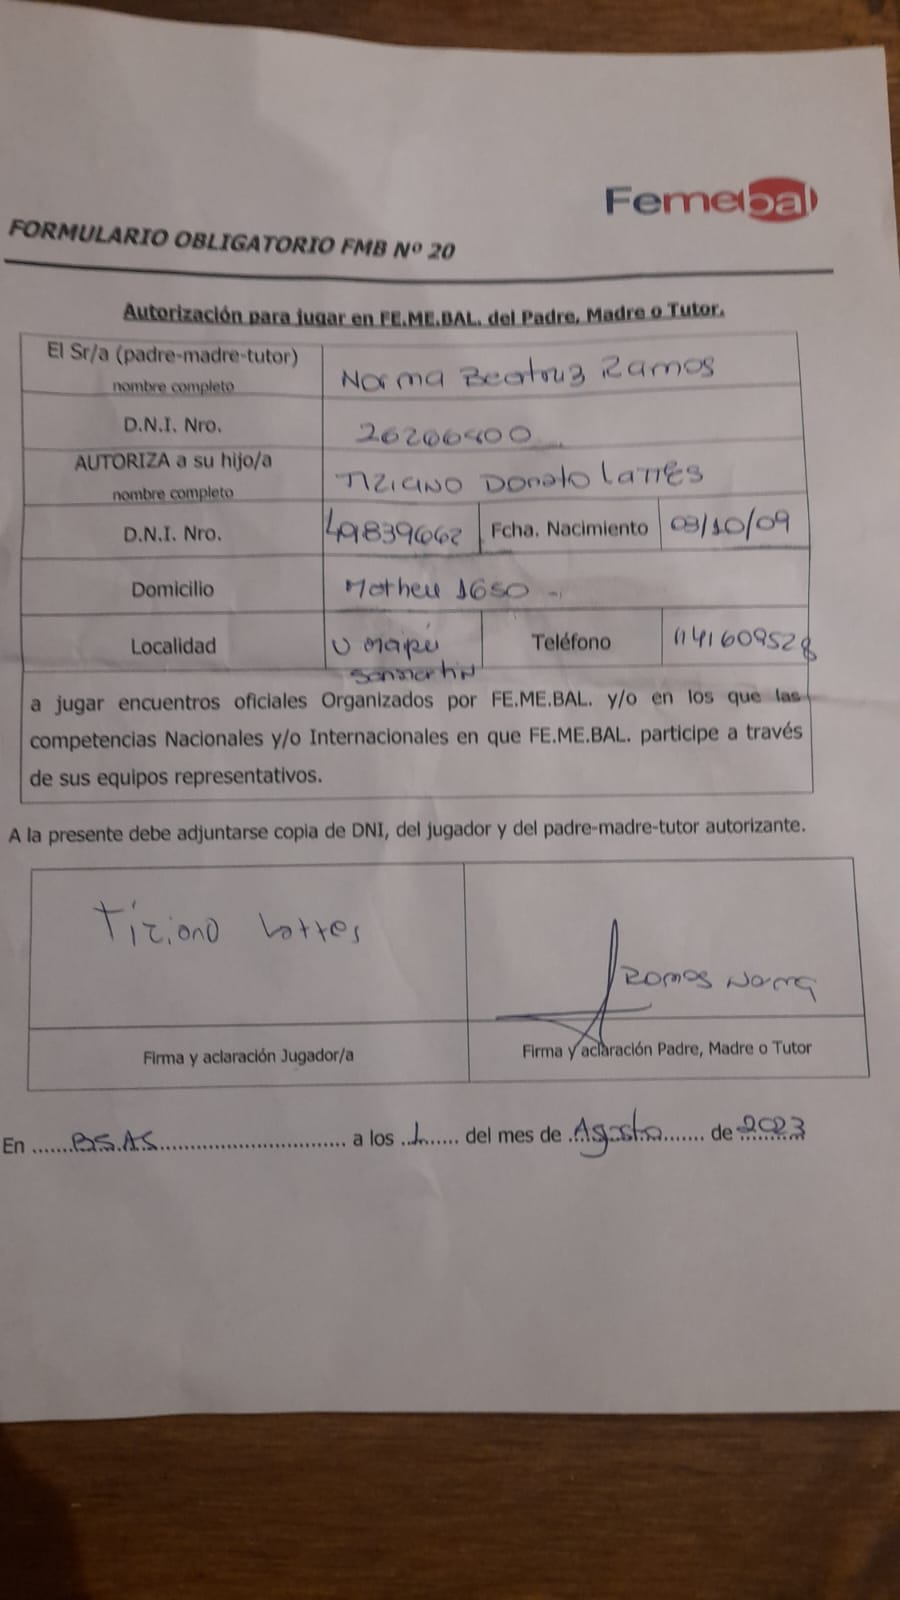 Femebal
FORMULARIO OBLIGATORIO FMB Nº 20
Autorización para jugar en FE.ME.BAL. del Padre, Madre o Tutor.
El Sr/a (padre-madre-tutor) nombre completo Norma Beatriz Ramos
D.N.I. Nro. 26266400
AUTORIZA a su hijo/a nombre completo Tiziano Donato Lattes
D.N.I. Nro. 49839662 Fcha. Nacimiento 03/10/09
Domicilio Matheu 1650
Localidad V maipú Teléfono 1141609528
San martin
a jugar encuentros oficiales Organizados por FE.ME.BAL. y/o en los que las
competencias Nacionales y/o Internacionales en que FE.ME.BAL. participe a través
de sus equipos representativos.
A la presente debe adjuntarse copia de DNI, del jugador y del padre-madre-tutor autorizante.
Tiziano Lattes
Ramos Norma
Firma y aclaración Jugador/a Firma y aclaración Padre, Madre o Tutor
En ......BS.AS............................. a los ..1...... del mes de .Agosto....... de 2023